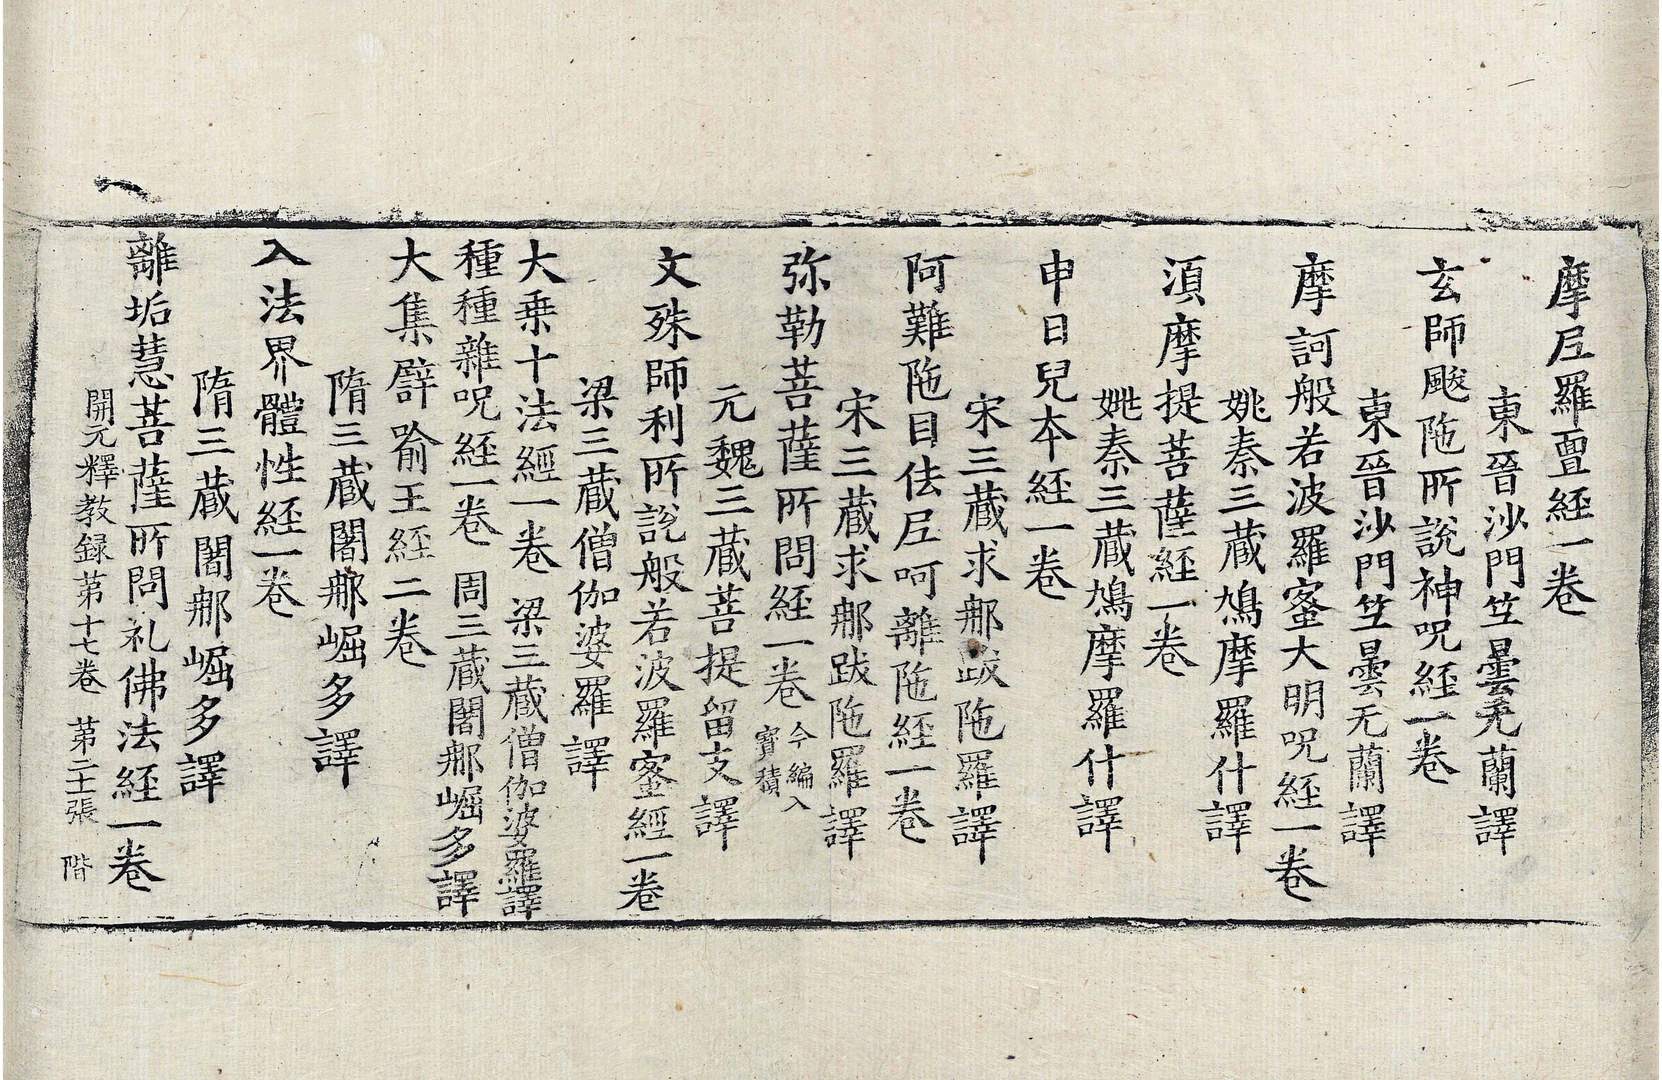 摩尼羅亶経一卷
東晉沙門竺曇无蘭譯
玄師颰陁所說神呪経一卷
東晉沙門竺曇无蘭譯
摩訶般若波羅蜜大明呪経一卷
姚秦三藏鳩摩羅什譯
湏摩提菩薩経一卷
姚秦三藏鳩摩羅什譯
申日兒本経一卷
宋三藏求𨙻跋陁羅譯
阿難陁目佉尼呵離陁経一卷
宋三藏求𨙻跋陁羅譯
弥勒菩薩所問経一卷 今編入
寳積
元魏三藏菩提留支譯
文殊師利所說般若波羅蜜經一卷
梁三藏僧伽婆羅譯
大乗十法經一卷 梁三藏僧伽婆羅譯
種種雜呪経一卷 周三藏闍𨙻崛多譯
大集譬喻王経二卷
隋三藏闍𨙻崛多譯
入法界體性経一卷
隋三藏闍𨙻崛多譯
離垢慧菩薩所問礼佛法経一卷
開元釋教録第十七卷 第二十張 階